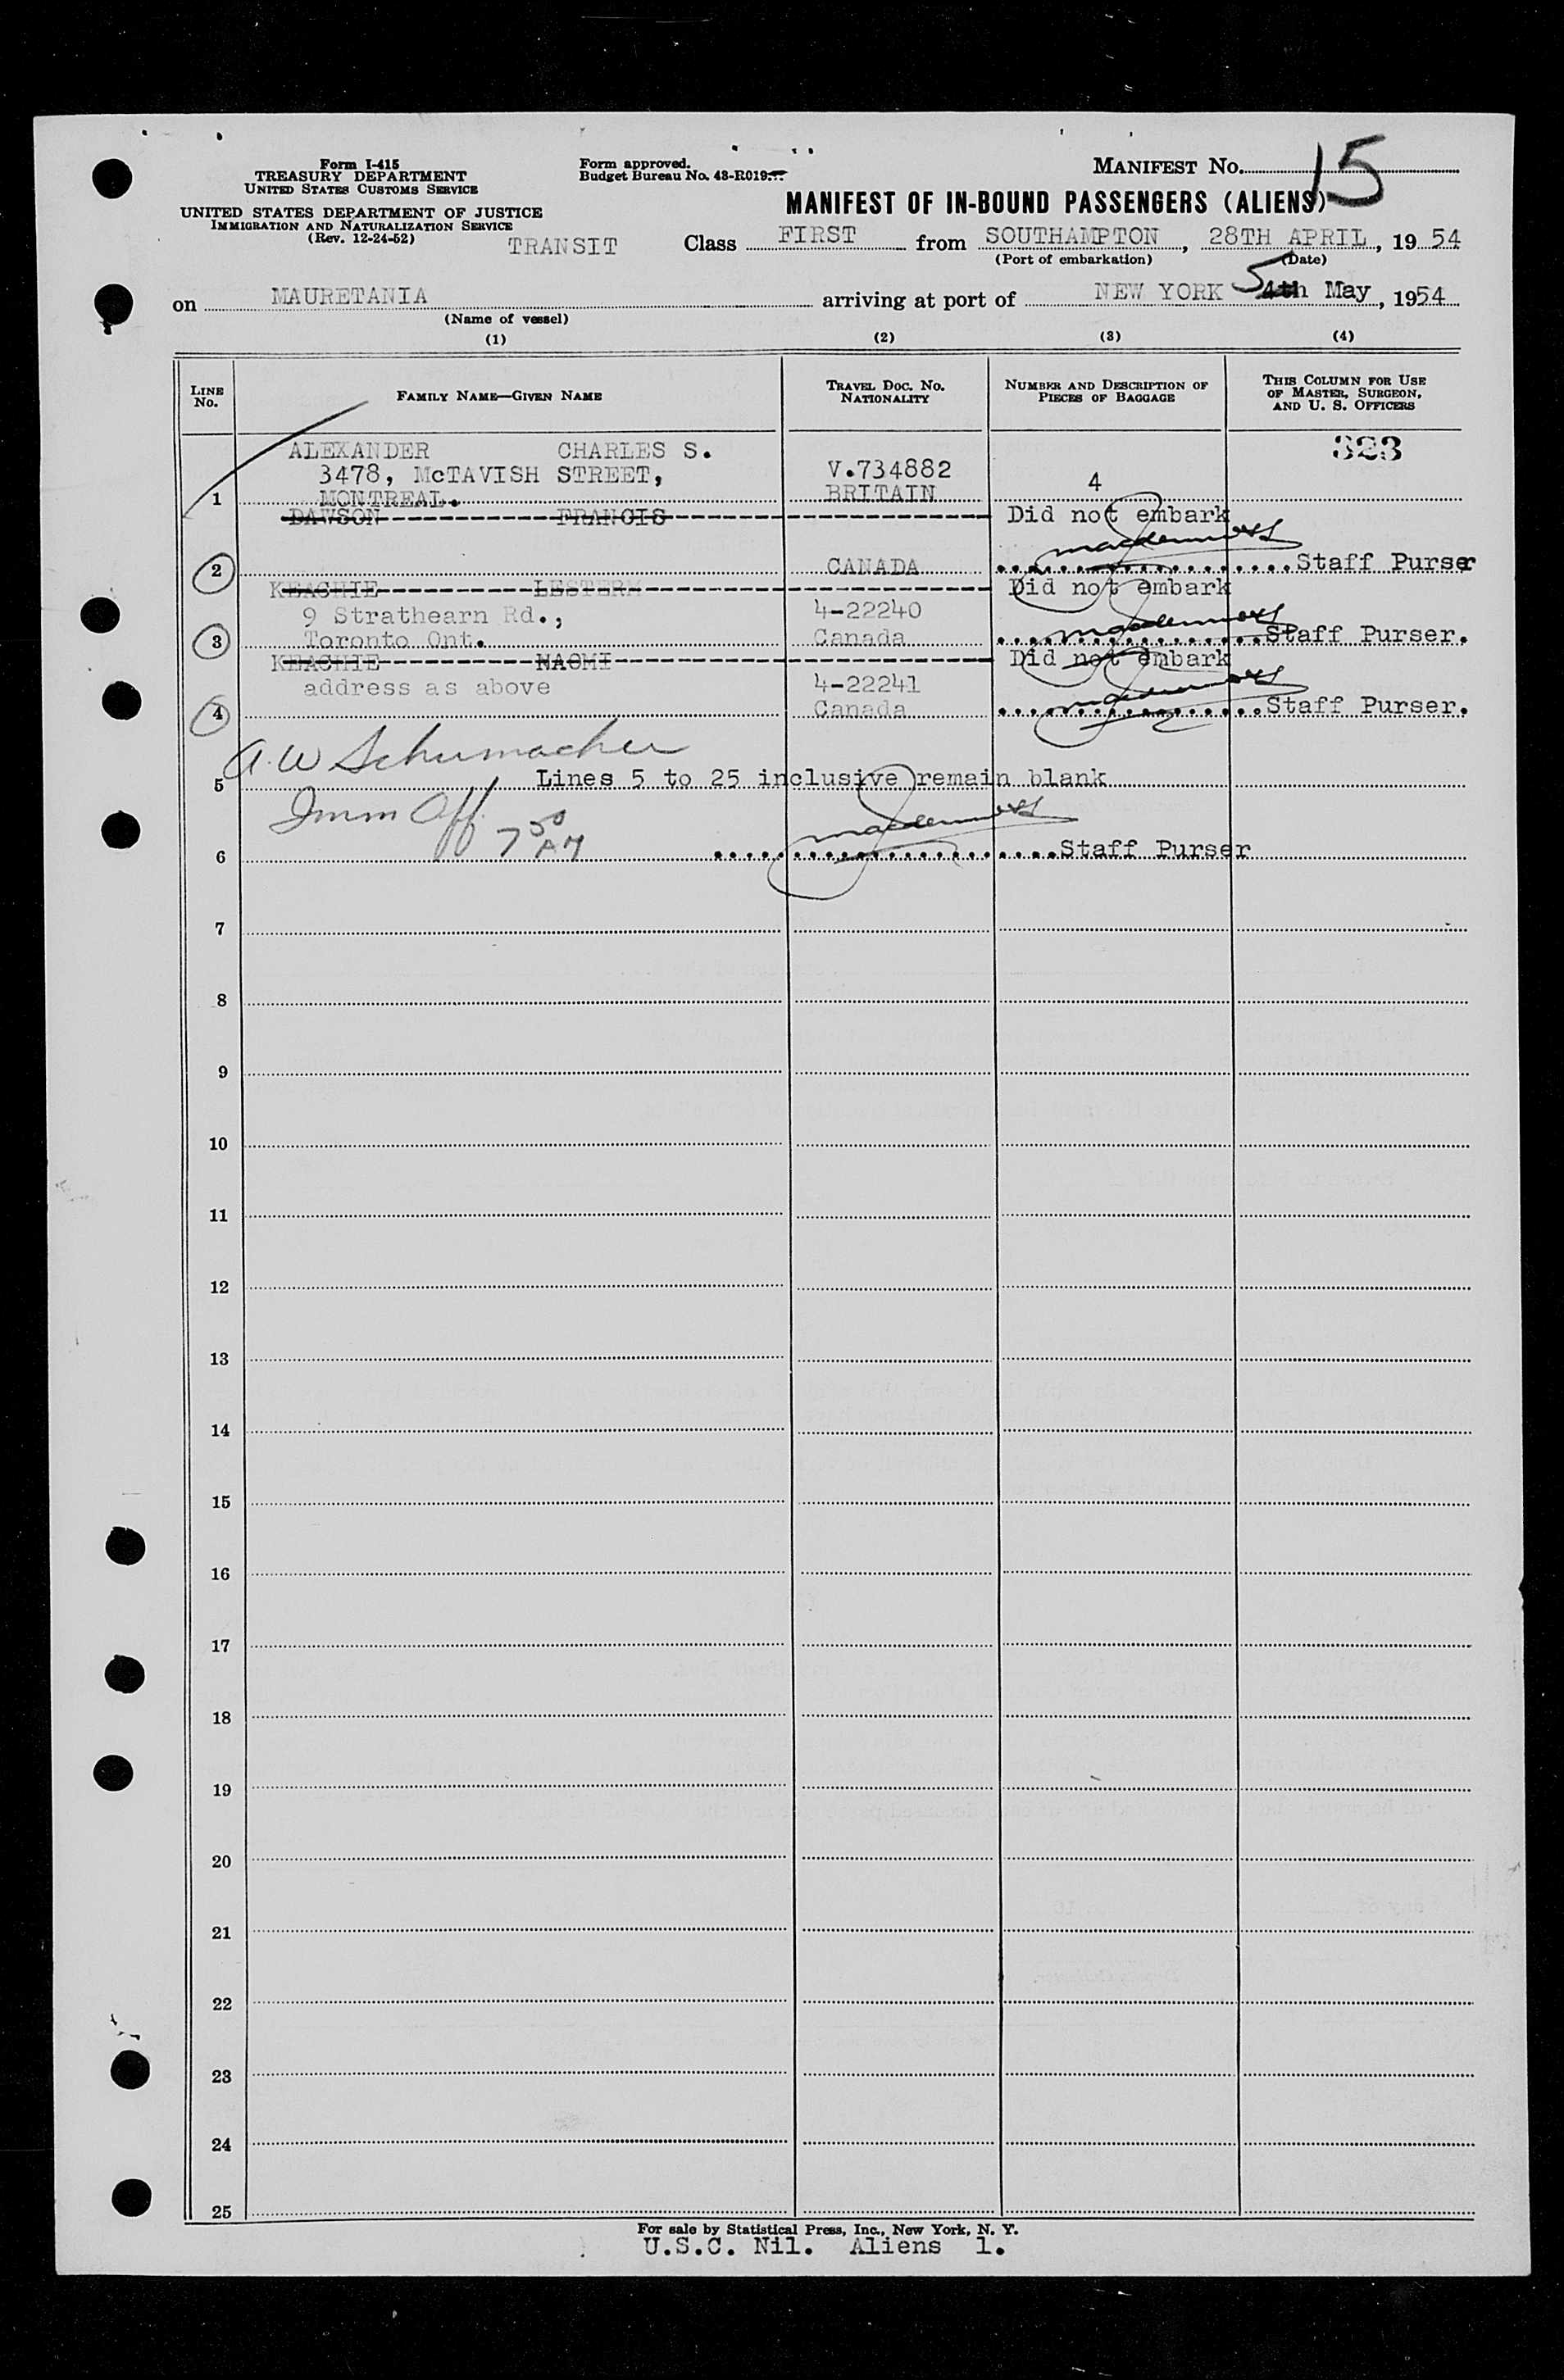 Form I-415
TREASURY DEPARTMENT
UNITED STATES CUSTOMS SERVICE
UNITED STATES DEPARTMENT OF JUSTICE
IMMIGRATION AND NATURALIZATION SERVICE
(Rev. 12-24-52)
Form approved.
Budget Bureau No. 43-R019
MANIFEST No. 15
MANIFEST OF IN-BOUND PASSENGERS (ALIENS)
TRANSIT Class FIRST from SOUTHAMPTON, 28TH APRIL, 19 54
(Port of embarkation) (Date)
on MAURETANIA arriving at port of NEW YORK 5 4th May, 1954
(Name of vessel)
(1) (2) (3) (4)
LINE No. FAMILY NAME—GIVEN NAME TRAVEL DOC. NO. NATIONALITY NUMBER AND DESCRIPTION OF PIECES OF BAGGAGE THIS COLUMN FOR USE OF MASTER, SURGEON, AND U. S. OFFICERS
ALEXANDER CHARLES S. 323
3478, McTAVISH STREET, V.734882 4
1 MONTREAL. BRITAIN
DAWSON FRANCIS Did not embark
2 CANADA Staff Purser
KEACHIE LESTER Did not embark
9 Strathearn Rd., 4-22240
3 Toronto Ont. Canada Staff Purser.
KEACHIE NAOMI Did not embark
address as above 4-22241
4 Canada Staff Purser.
A.W Schumacher
5 Lines 5 to 25 inclusive remain blank
Imm Off. 7 50 AM
6 Staff Purser
7
8
9
10
11
12
13
14
15
16
17
18
19
20
21
22
23
24
25
For sale by Statistical Press, Inc., New York, N. Y.
U.S.C. Nil. Aliens 1.